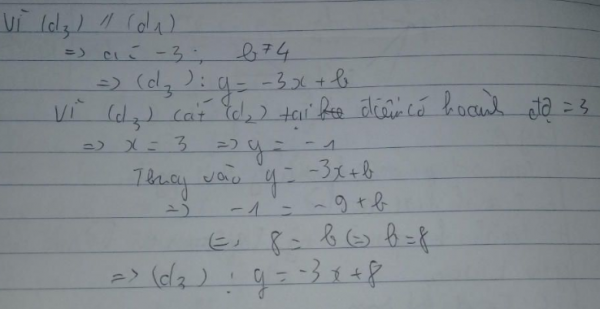 Vì (d₃) // (d₁)
=> a = -3 ; b ≠ 4
=> (d₃) : y = -3x + b
Vì (d₃) cắt (d₂) tại điểm có hoành độ = 3
=> x = 3 => y = -1
Thay vào y = -3x + b
=> -1 = -9 + b
(=) 8 = b (=> b = 8
=> (d₃) : y = -3x + 8